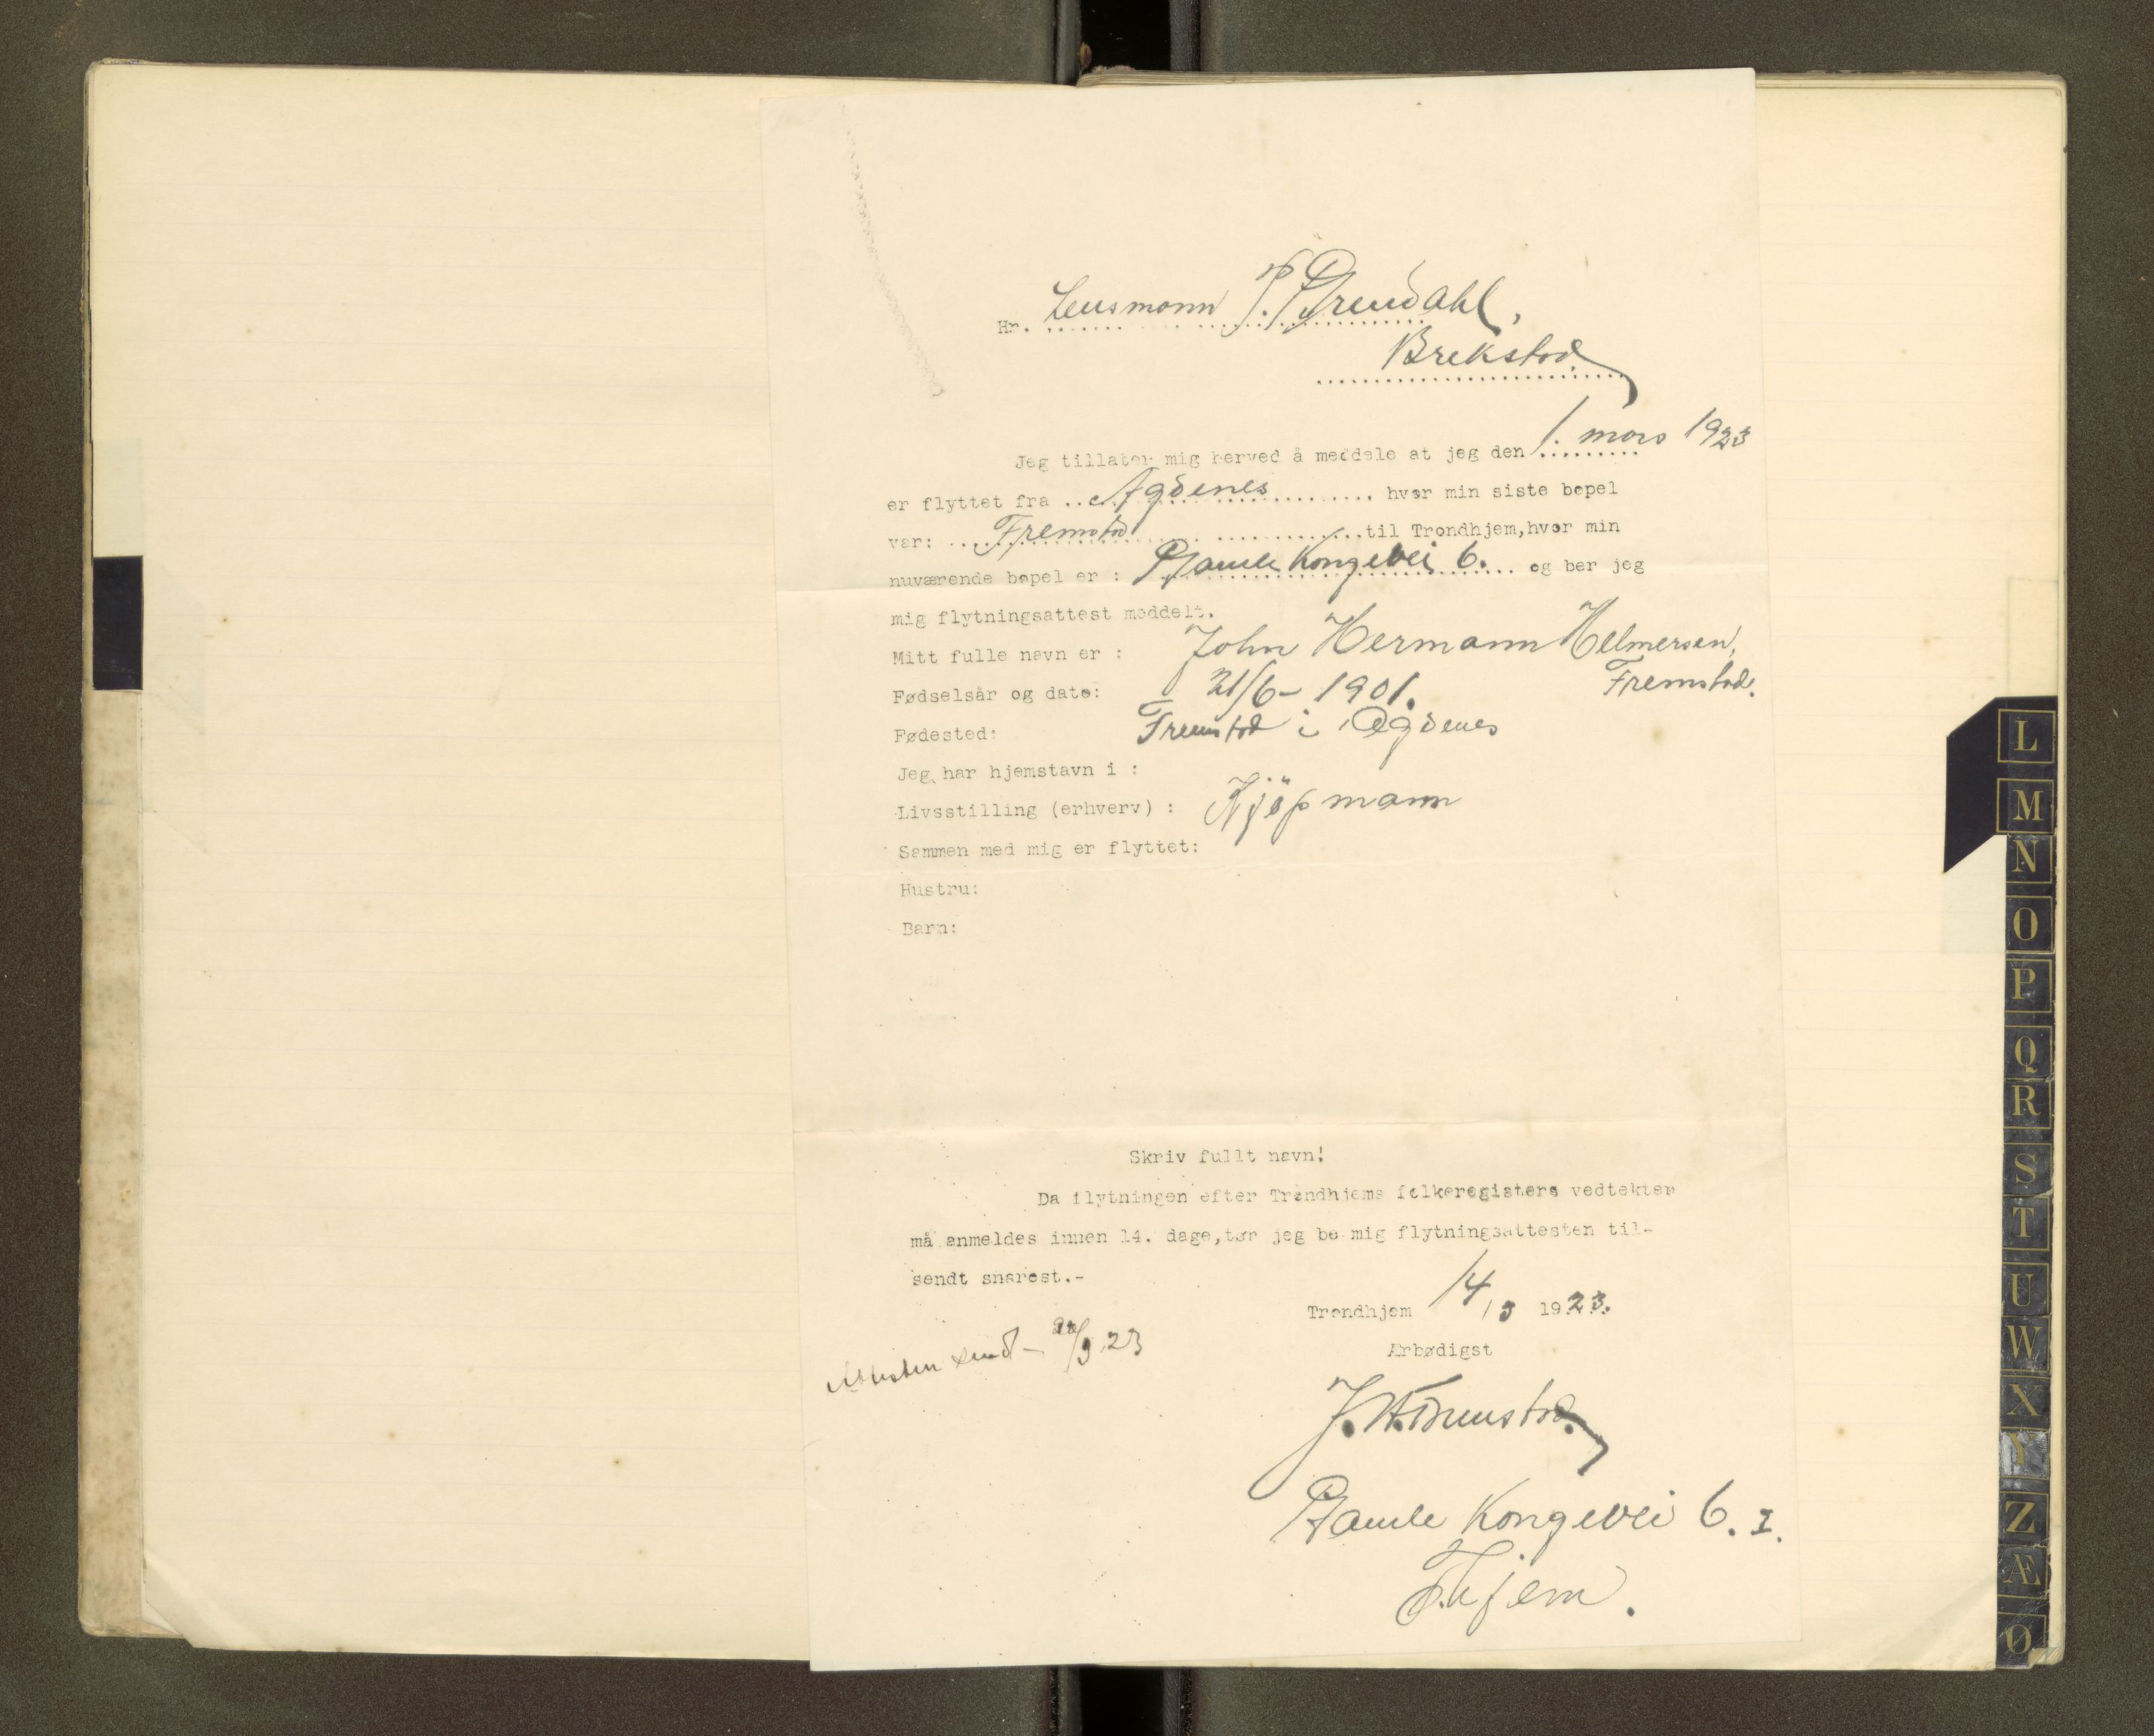 Hr. Lensmann P. Grendahl,
Brekstad
Jeg tillater mig herved å meddele at jeg den 1. mars 1923
er flyttet fra Agdenes hvor min siste bopel
var: Fremstad til Trondhjem, hvor min
nuværende bopel er : Gamle Kongevei 6. og ber jeg
mig flytningsattest meddelt.
Mitt fulle navn er : John Hermann Helmersen,
Fremstad.
Fødselsår og dato: 21/6 - 1901.
Fødested: Fremstad i Agdenes
Jeg har hjemstavn i :
Livsstilling (erhverv) : Kjøpmann
Sammen med mig er flyttet:
Hustru:
Barn:
Skriv fullt navn!
Da flytningen efter Trondhjems folkeregisters vedtekter
må anmeldes innen 14. dage, tør jeg be mig flytningsattesten til-
sendt snarest.-
Trondhjem 14/3 1923.
Attesten sendt - /3 23
Ærbødigst
J. H. Fremstad.
Gamle Kongevei 6. I.
Thjem.
L
M
N
O
P
Q
R
S
T
U
W
X
Y
Z
Æ
Ø